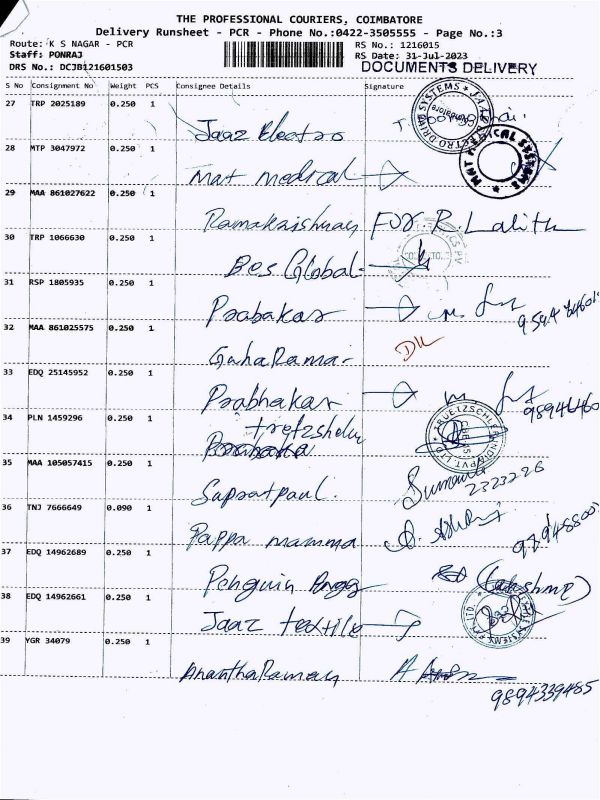 THE PROFESSIONAL COURIERS, COIMBATORE
Delivery Runsheet - PCR - Phone No.:0422-3505555 - Page No.:3
Route: K S NAGAR - PCR
RS No.: 1216015
Staff: PONRAJ
RS Date: 31-Jul-2023
DRS No.: DCJB121601503
DOCUMENTS DELIVERY
S No Consignment No Weight PCS Consignee Details Signature
27 TRP 2025189 0.250 1
Jaaz Electro
28 MTP 3047972 0.250 1
Mat medical
MEDICAL SYSTEMS
29 MAA 861027622 0.250 1
Ramakrishnan FOR R. Lalith
30 TRP 1066630 0.250 1
Bes Global
31 RSP 1805935 0.250 1
Prabakar
32 MAA 861025575 0.250 1
33 EDQ 25145952 0.250 1
Prabhakar
34 PLN 1459296 0.250 1
35 MAA 105057415 0.250 1
2323226
36 TNJ 7666649 0.090 1
Pappa mamma
37 EDQ 14962689 0.250 1
Penguin Engg
38 EDQ 14962661 0.250 1
Jaaz textile
39 YGR 34079 0.250 1
AnanthaRaman
9894339485